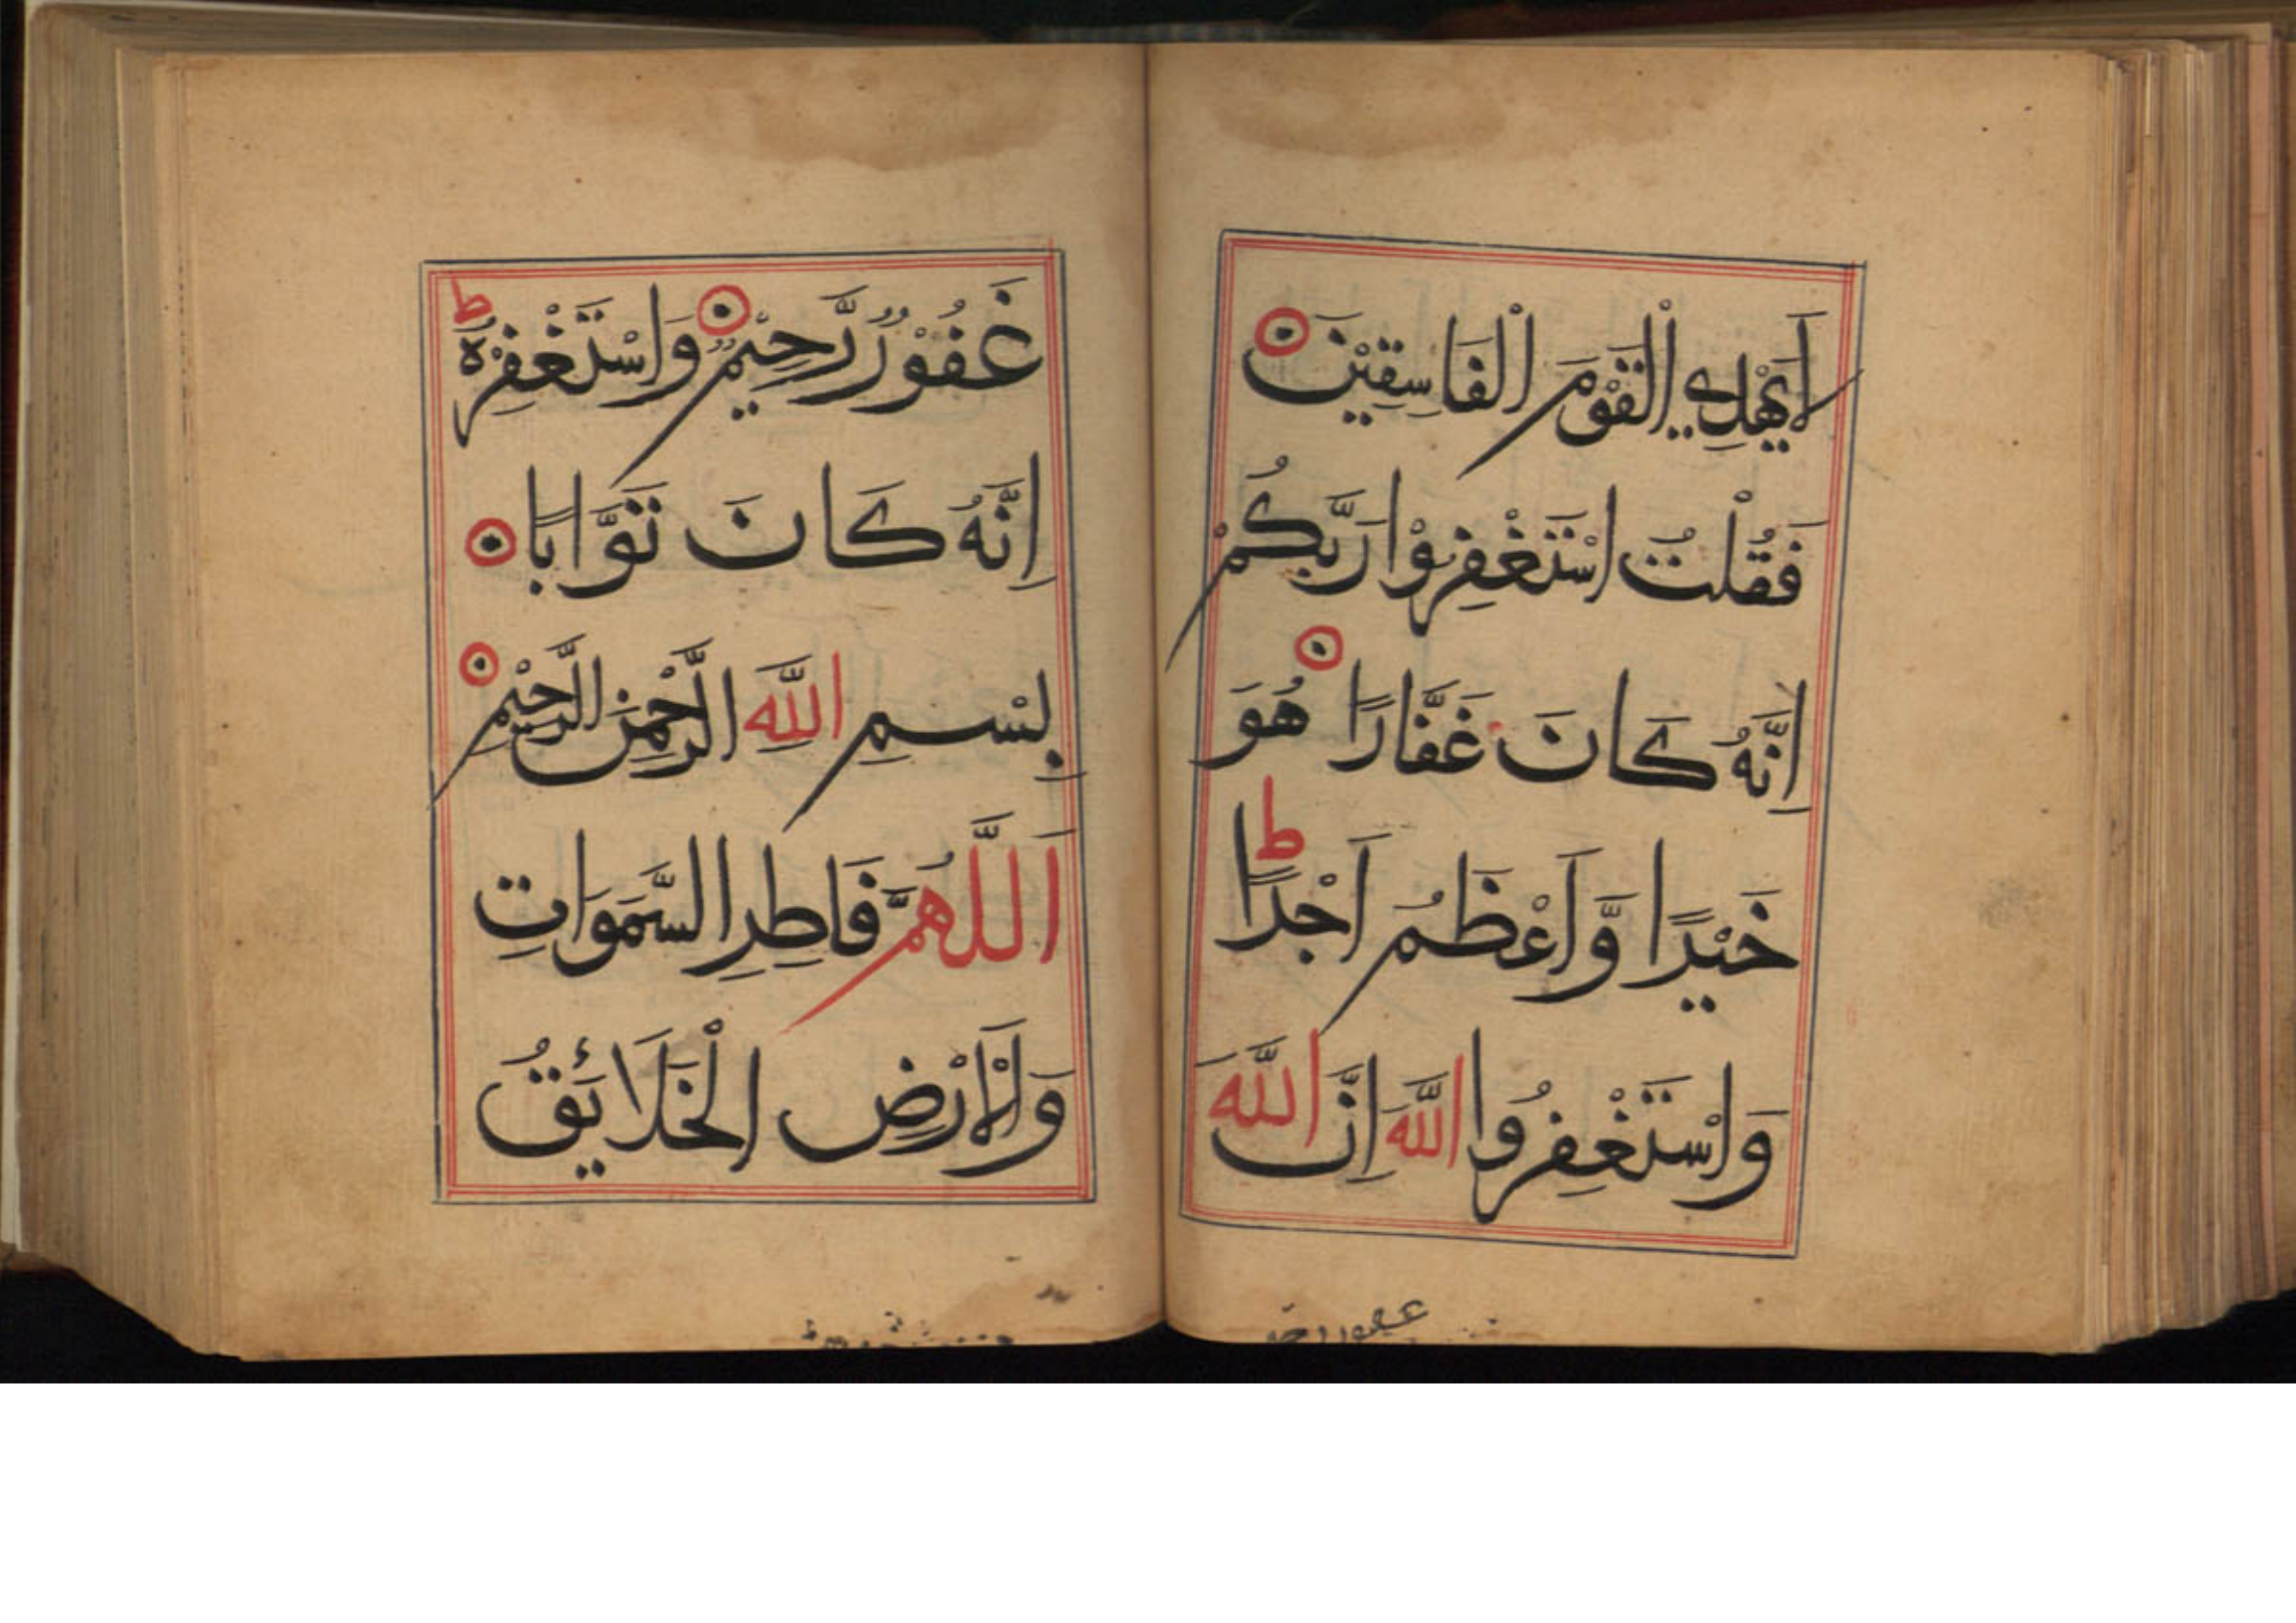 لَا يَهْدِي الْقَوْمَ الْفَاسِقِيْنَ
فَقُلْتُ اسْتَغْفِرُوْا رَبَّكُمْ
اِنَّهُ كَانَ غَفَّارًا هُوَ
خَيْرًا وَّاَعْظَمُ اَجْرًا ط
وَاسْتَغْفِرُوا اللّٰهَ اِنَّ اللّٰهَ
غفور رحيم
غَفُوْرٌ رَّحِيْمٌ وَاسْتَغْفِرْهُ ط
اِنَّهُ كَانَ تَوَّابًا
بِسْمِ اللّٰهِ الرَّحْمٰنِ الرَّحِيْمِ
اَللّٰهُمَّ فَاطِرِ السَّمَوَاتِ
وَالْاَرْضِ الْخَلَائِقُ